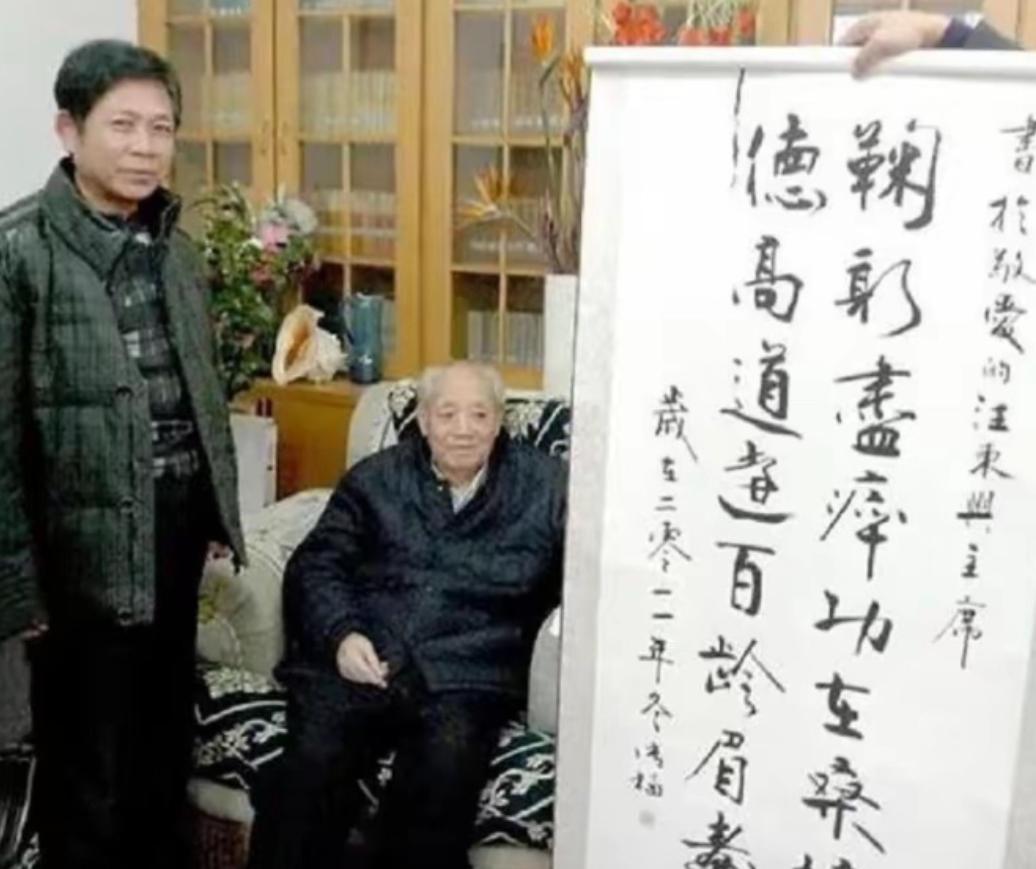 書於敬愛的汪東興主席
鞠躬盡瘁功在桑
德高道達百齡眉壽
歲在二零一一年冬